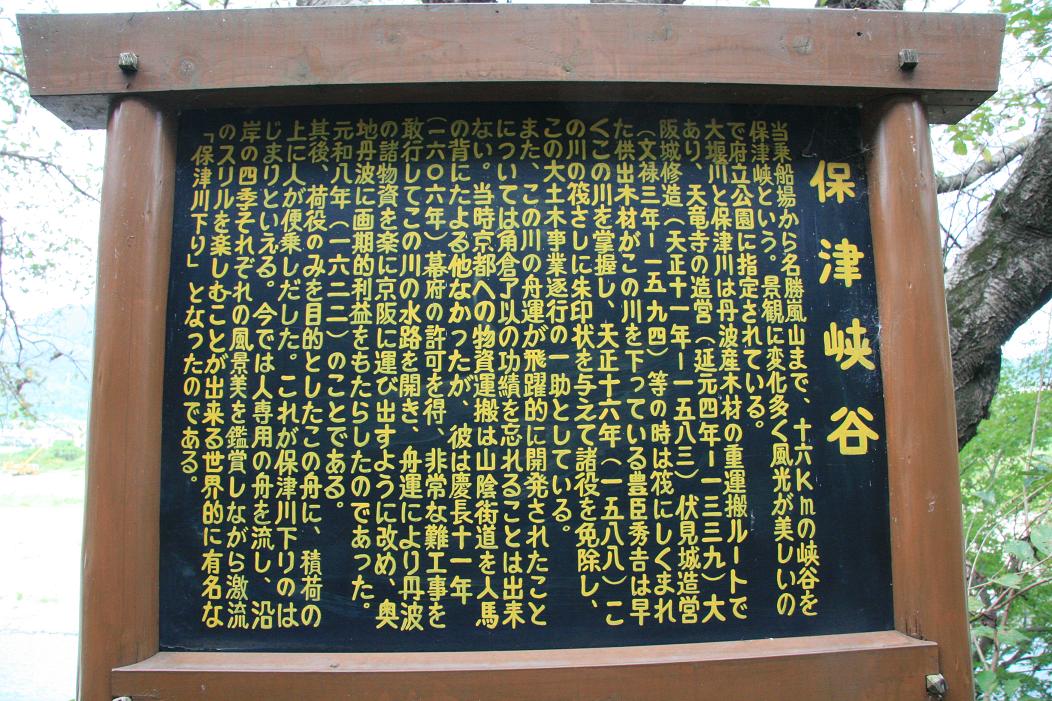 保津峡谷
当乗船場から名勝嵐山まで、十六kmの峡谷を
保津峡という。景観に変化多く風光が美しいの
で府立公園に指定されている。
大堰川と保津川は丹波産木材の重運搬ルートで
あり、天竜寺の造営(延元四年ー一三三九)大
阪城修造(天正十一年ー一五八三)伏見城造営
(文禄三年ー一五九四)等の時は筏にしくまれ
た供出木材がこの川を下っている豊臣秀吉は早
くこの川を掌握し、天正十六年(一五八八)こ
の川の筏さしに朱印状を与えて諸役を免除し、
この大土木事業遂行の一助としている。
また、この川の舟運が飛躍的に開発されたこと
については角倉了以の功績を忘れることは出来
ない。当時京都への物資運搬は山陰街道を人馬
の背にたよる他なかったが、彼は慶長十一年
(一六〇六年)幕府の許可を得、非常な難工事を
敢行してこの川の水路を開き、舟運により丹波
の諸物資を楽に京阪に運び出すように改め、奥
地丹波に画期的利益をもたらしたのであった。
元和八年(一六二二)のことである。
其後、荷役のみを目的としたこの舟に、積荷の
上に人が便乗しだした。これが保津川下りのは
じまりといえる。今では人専用の舟を流し、沿
岸の四季それぞれの風景美を鑑賞しながら激流
のスリルを楽しむことが出来る世界的に有名な
「保津川下り」となったのである。